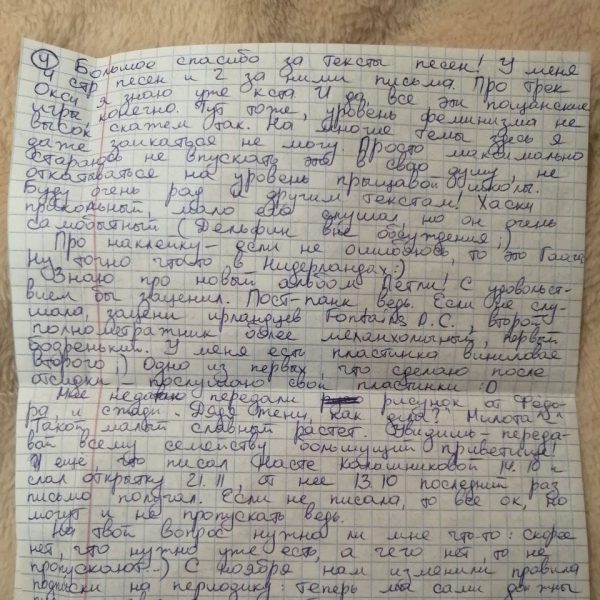 4 Большое спасибо за тексты песен! У меня
4 стр песен и 2 за ними письма. Про трек
Окси я знаю уже кста И да, все эти пацанские
игры конечно. Тут тоже, уровень феминизма не
высок скажем так. На многие темы здесь я
даже заикаться не могу. Просто максимально
стараюсь не впускать это в свою душу, не
откатываться на уровень прыщавой школы.
Буду очень рад и другим текстам! Хаски
прикольный, мало его слушал, но он очень
самобытный (Дельфин вне обсуждения ;)
Про наклейку – если не ошибаюсь, то это Гаага
Ну точно что-то в Нидерландах :)
Знаю про новый альбом Петли! С удовольст-
вием бы заценил. Пост-панк ведь. Если не слу-
шала, зацени ирландцев Fontaines D.C., второй
полнометражник более меланхоличный, первый
бодренький. У меня есть пластинка виниловая
второго ;) Одно из первых, что сделаю после
отсидки – послушаю свои пластинки :D
Мне недавно передали рисунок от Федо-
ра, и сзади "Дядя Жени, как дела?" Милота
Такой малый славный растет. Увидишь – переда-
вай всему семейству большущий приветище!
И еще, что писал Насте Калашниковой 14.10 и
слал открытку 21.11, от нее 13.10 последний раз
письмо получал. Если не писала, то все ок, но
могут и не пропускать ведь.
На твой вопрос нужно ли мне что-то: скорее
нет, что нужно уже есть, а чего нет, то не
пропускают :) С ноября нам изменили правила
подписки на периодику: теперь мы сами должны